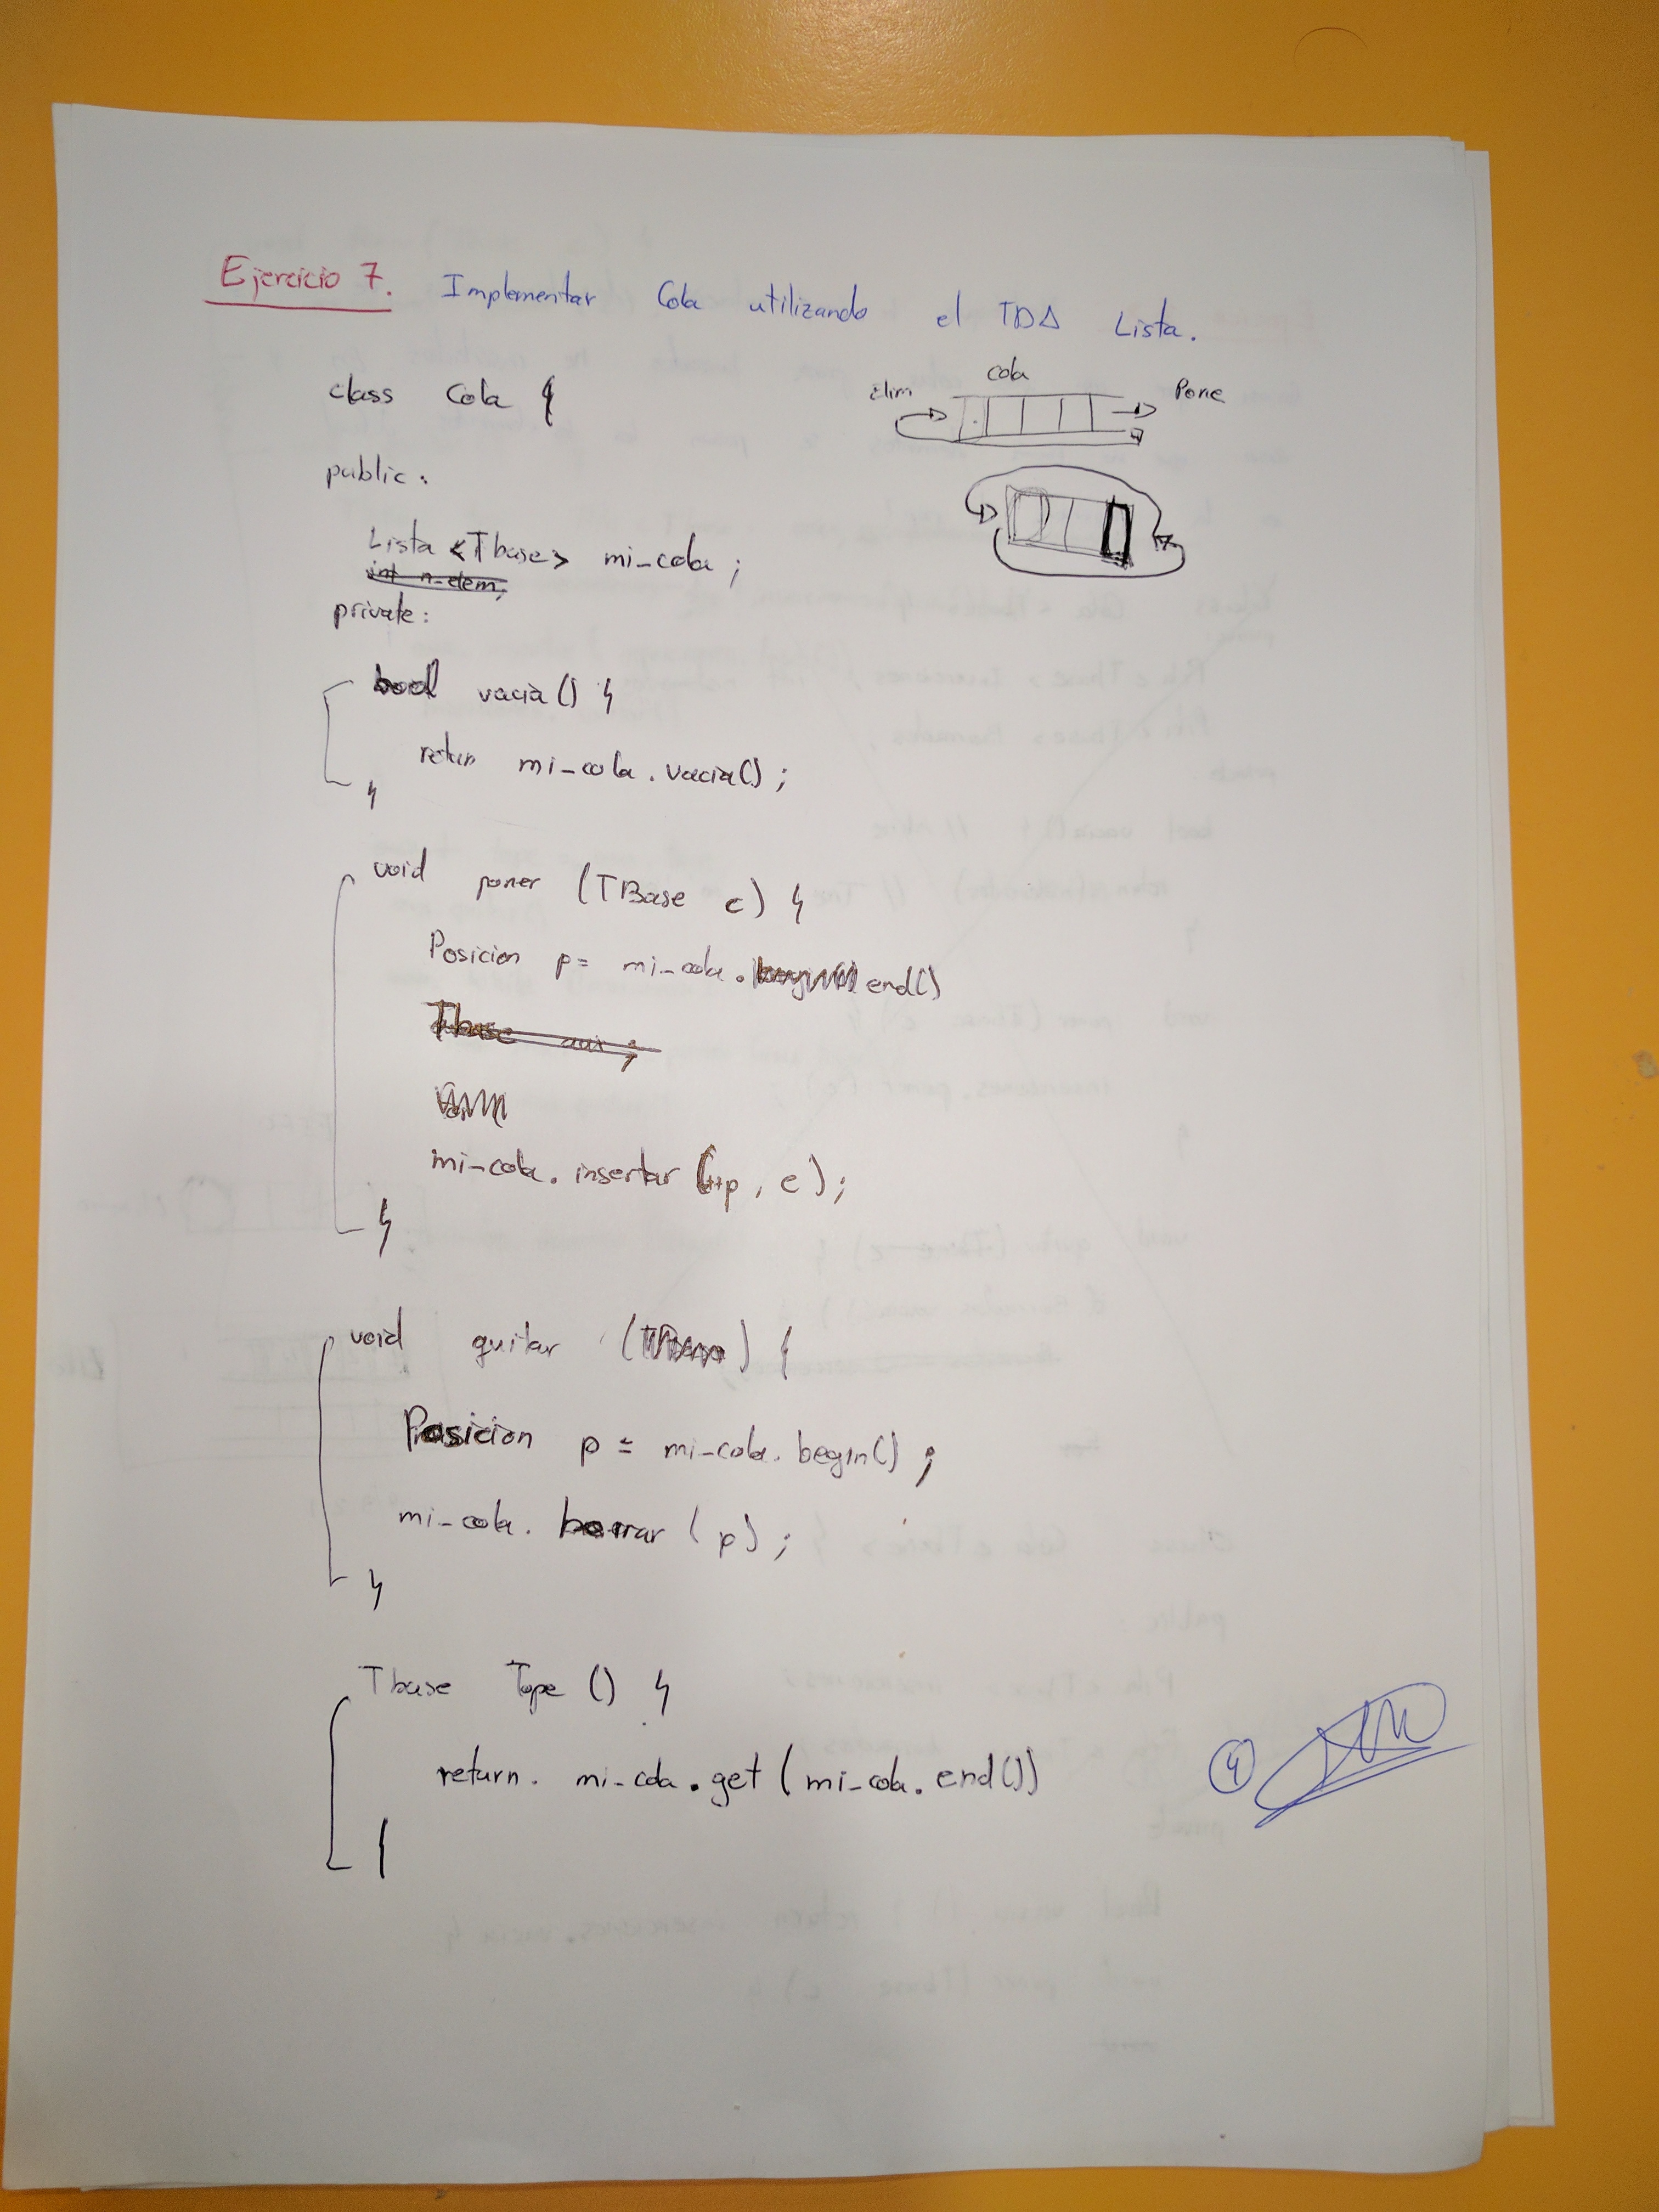 Ejercicio 7. Implementar Cola utilizando el TDA Lista.
class Cola {
Elim cola Pone
public:
Lista <Tbase> mi_cola;
int n_elem;
private:
bool vacia() {
return mi_cola.vacia();
}
void poner (TBase c) {
Posicion p= mi_cola. end()
Tbase aux;
mi_cola.insertar (++p, c);
}
void quitar () {
Posicion p = mi_cola.begin();
mi_cola.borrar (p);
}
Tbase Tope () {
return. mi_cola.get (mi_cola.end())
}
4